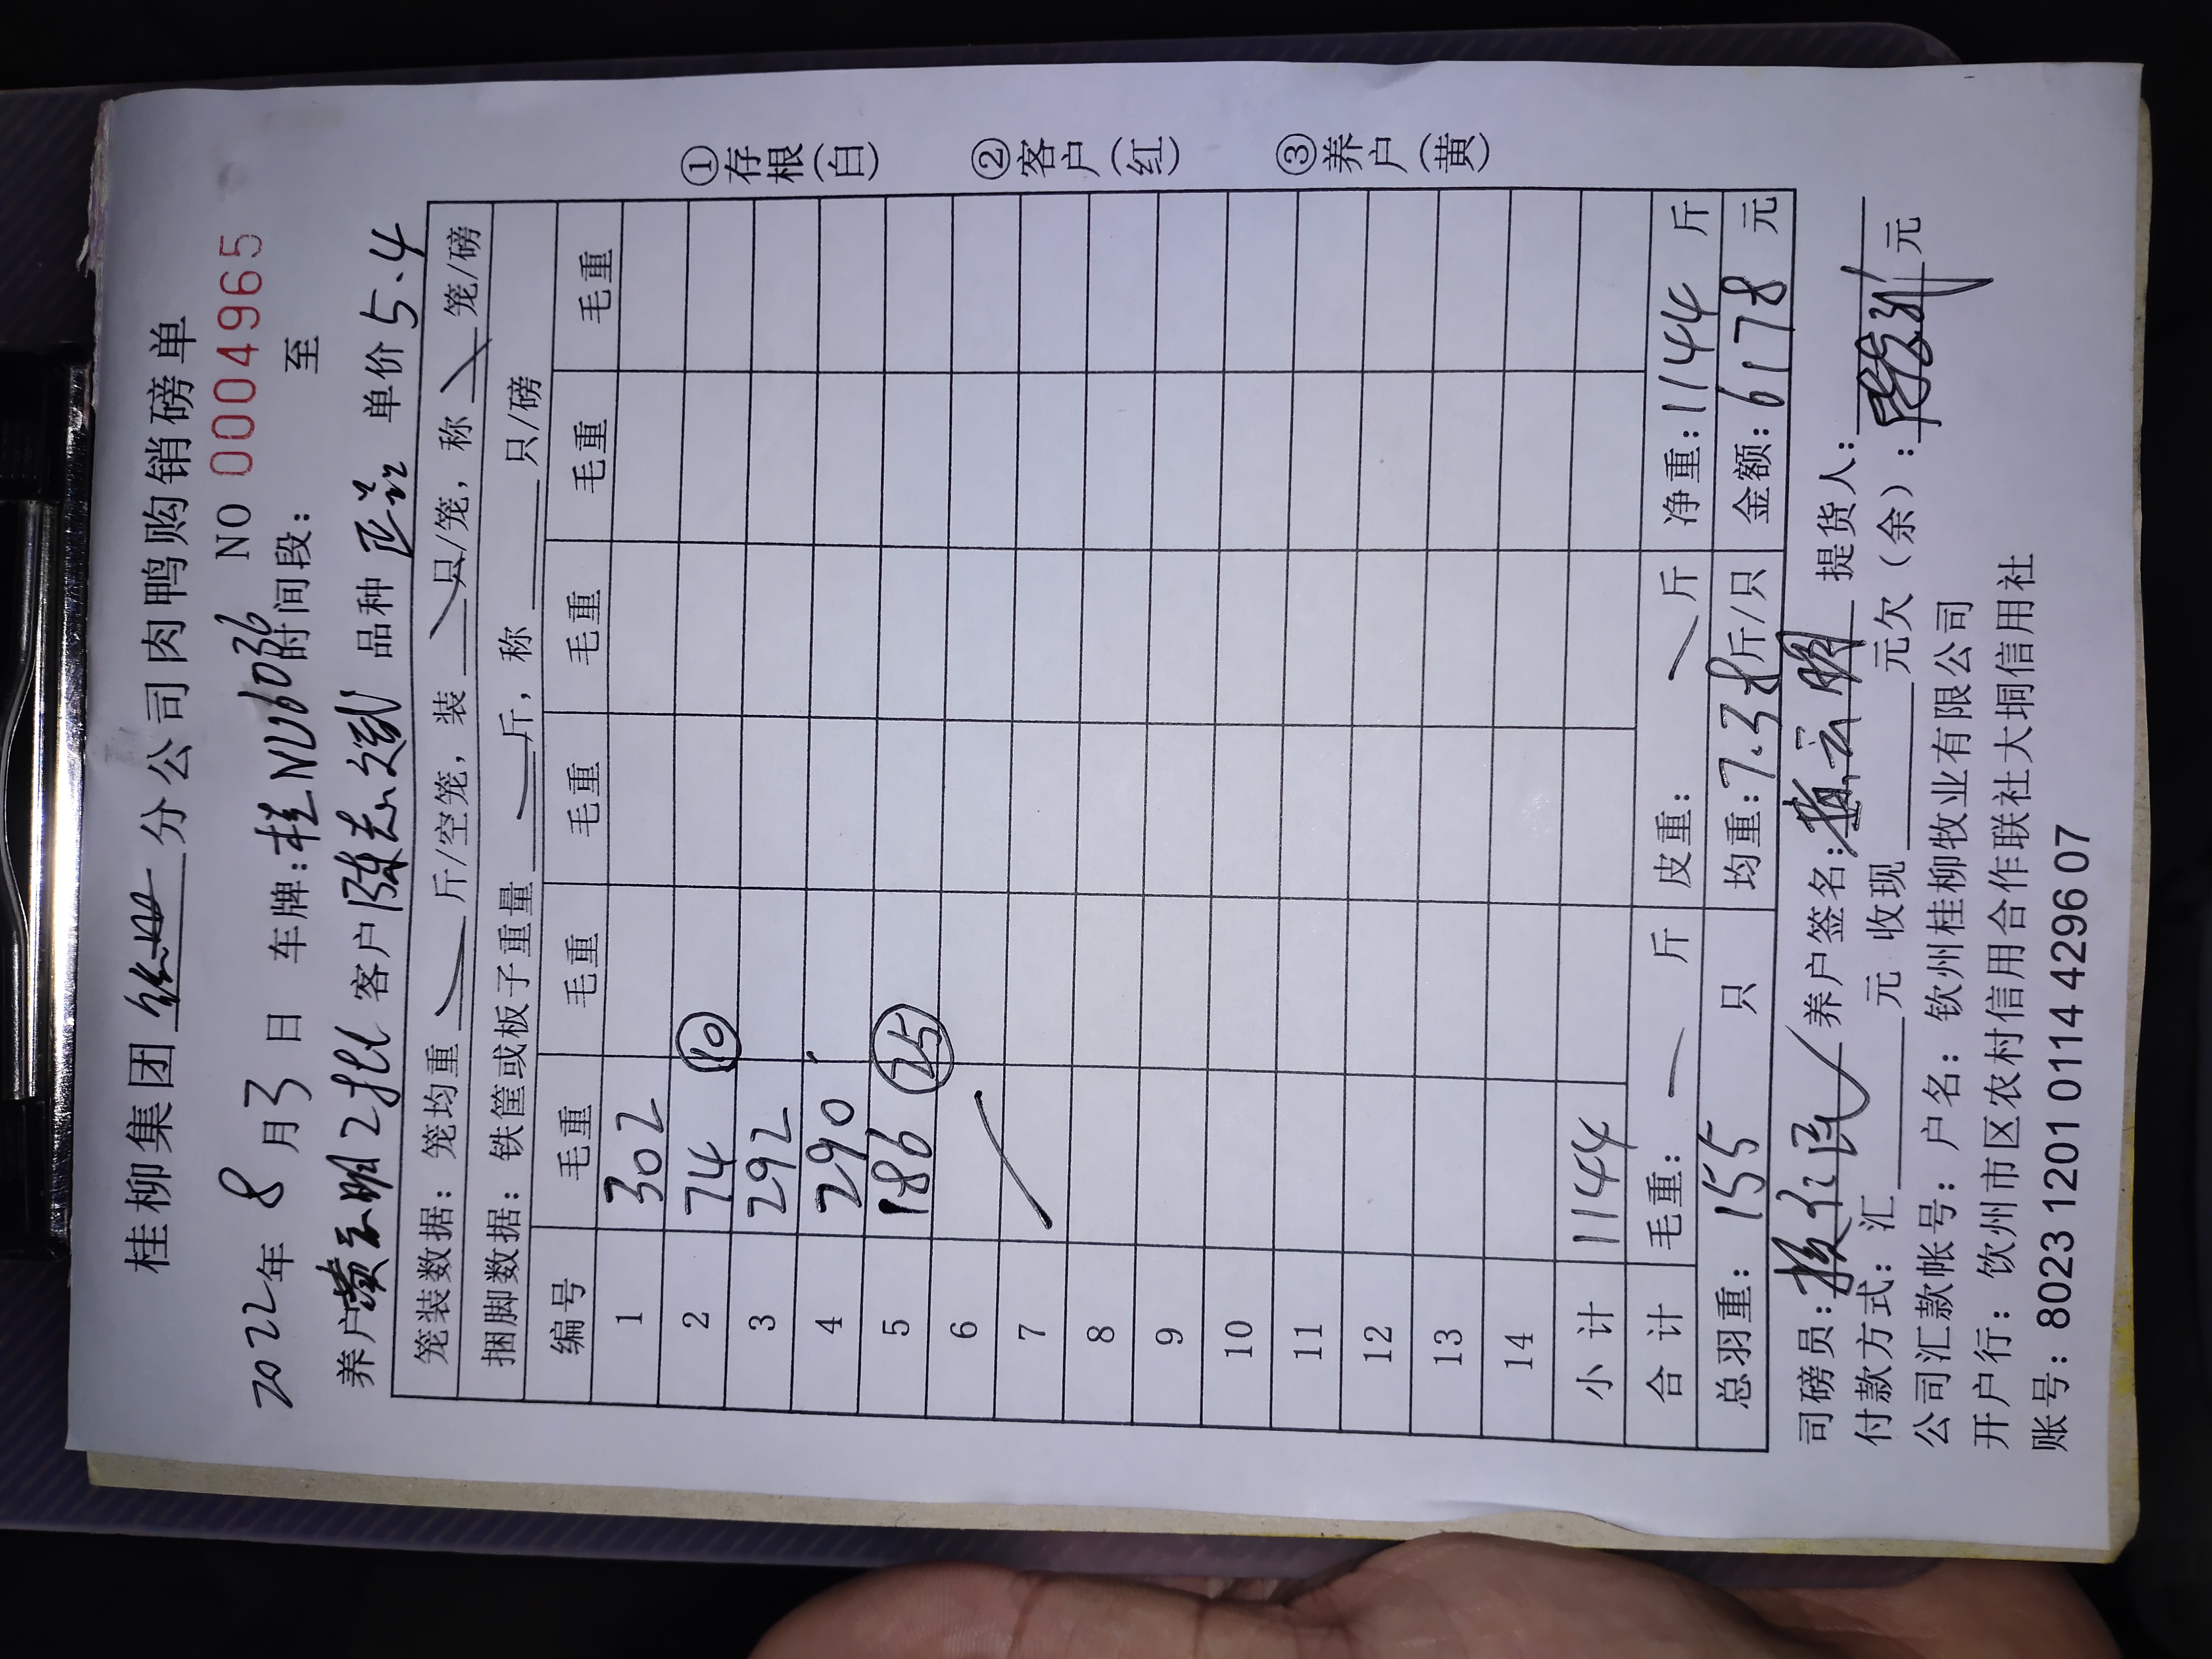 桂柳集团 分公司肉鸭购销磅单
2022年 8月3日 车牌:桂NU6036 NO 0004965
时间段: 至
养户黄云明2批 客户陈志 品种 单价5.4
笼装数据: 笼均重 斤/空笼, 装 只/笼, 称 笼/磅
捆脚数据: 铁筐或板子重量 斤, 称 只/磅
编号 毛重 毛重 毛重 毛重 毛重 毛重
1 302
2 74 ⑩
3 292
4 290
5 186 ㉕
6
7
8
9
10
11
12
13
14
小计 1144
合计 毛重: 斤 皮重: 斤 净重:1144 斤
总羽重: 155 只 均重:7.38斤/只 金额:6178 元
司磅员: 养户签名:黄云明 提货人:
付款方式: 汇 元 收现 元欠(余): 元
公司汇款帐号: 户名: 钦州桂柳牧业有限公司
开户行: 钦州市区农村信用合作联社大垌信用社
账号: 8023 1201 0114 4296 07
①存根(白)
②客户(红)
③养户(黄)